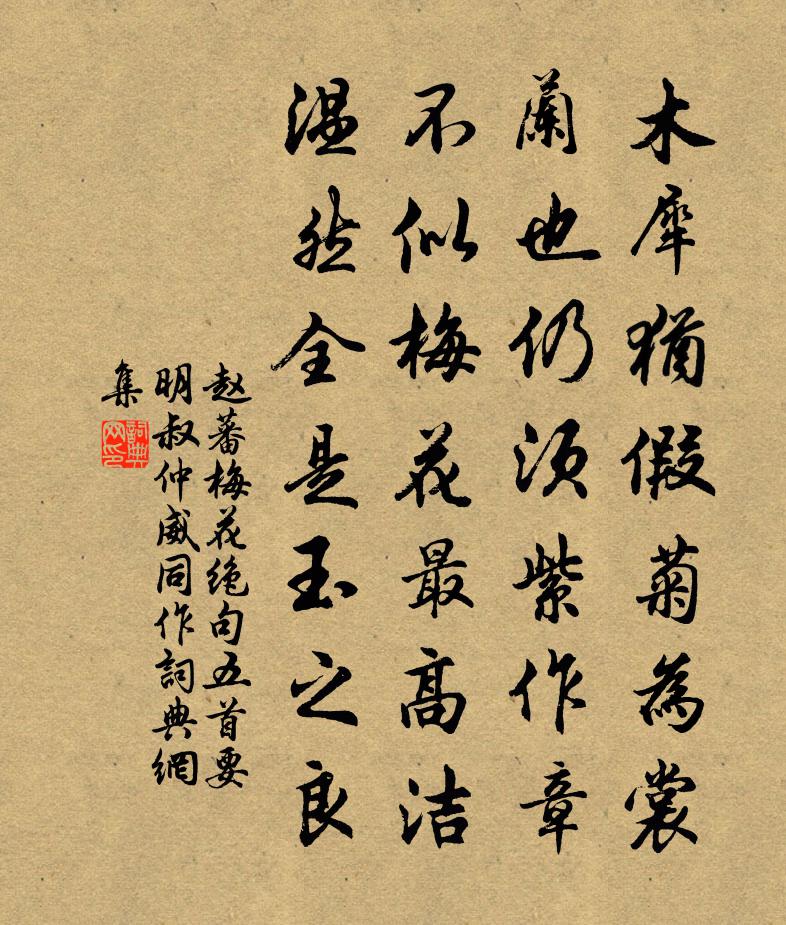 木犀猶假菊為裳
蘭也仍須紫作章
不似梅花最高洁
温然全是玉之良
赵蕃梅花绝句五首要
明叔仲威同作詞典網
集
詞典網印